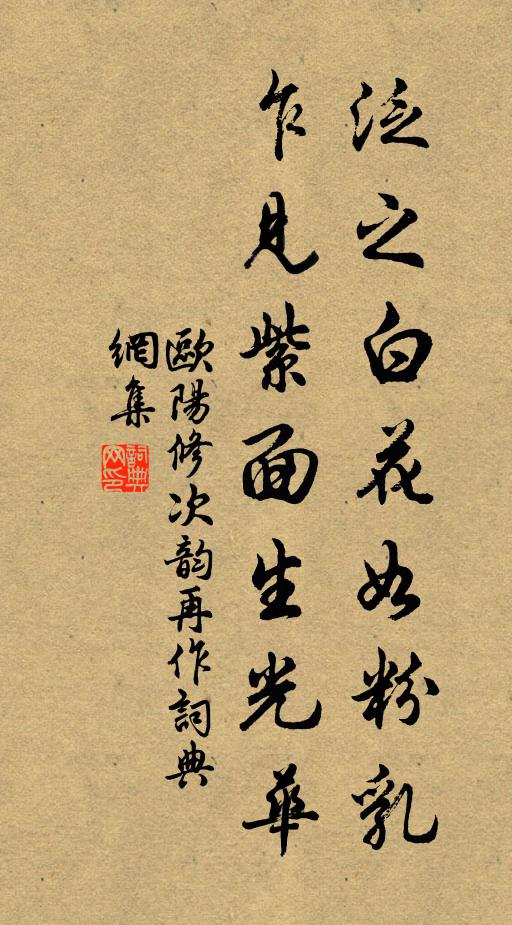 泛之白花如粉乳
乍見紫面生光華
歐陽修次韵再作詞典
網集
詞典
网印